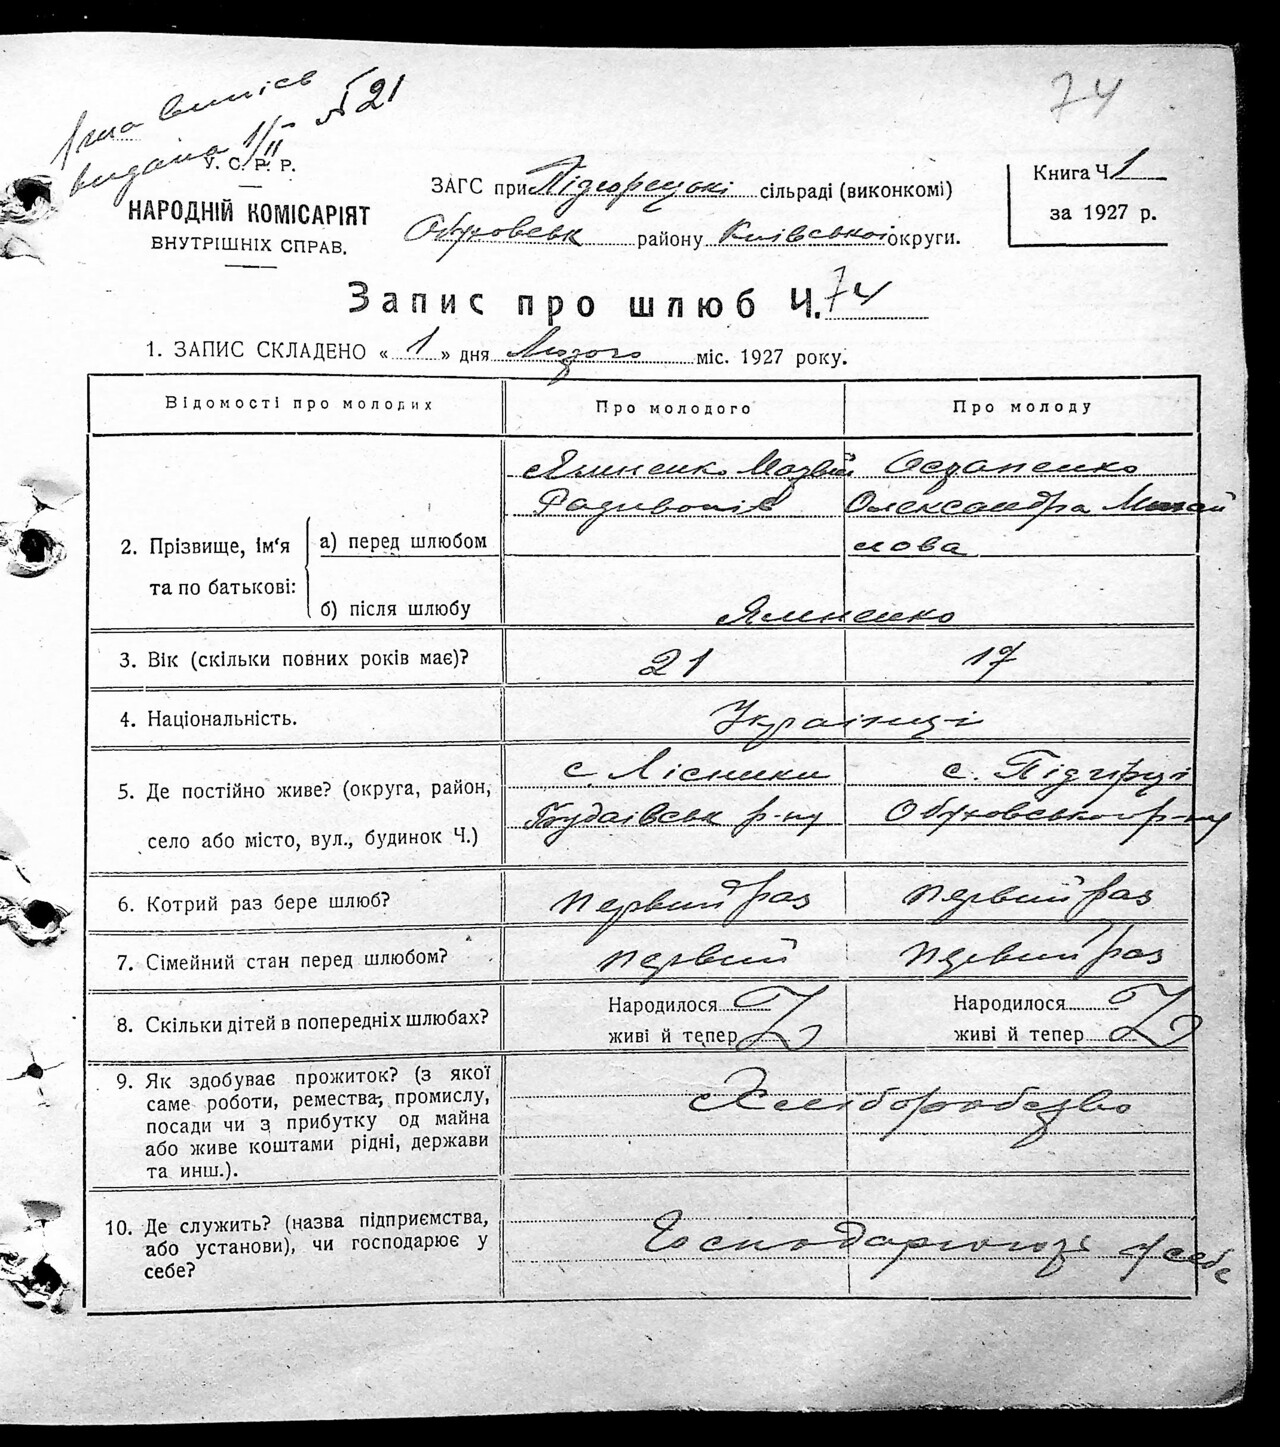 74
видана 1/II № 21
У. С. Р. Р.
НАРОДНІЙ КОМІСАРІЯТ
ВНУТРІШНІХ СПРАВ.
ЗАГС при Підгорецькі сільраді (виконкомі)
Обуховськ району Київської округи.
Книга Ч. 1
за 1927 р.
Запис про шлюб Ч. 74
1. ЗАПИС СКЛАДЕНО « 1 » дня Лютого міс. 1927 року.
Відомості про молодих
Про молодого
Про молоду
2. Прізвище, ім'я та по батькові:
а) перед шлюбом
Ялиненко Матвій
Радивонів
Остапенко
Олександра Михай
лова
б) після шлюбу
Ялиненко
3. Вік (скільки повних років має)?
21
17
4. Національність.
Українці
5. Де постійно живе? (округа, район,
село або місто, вул., будинок Ч.)
с Лісники
Будаївськ р-ну
с. Підгірці
Обуховського р-ну
6. Котрий раз бере шлюб?
первий раз
первий раз
7. Сімейний стан перед шлюбом?
первий
первий раз
8. Скільки дітей в попередніх шлюбах?
Народилося
живі й тепер
Народилося
живі й тепер
9. Як здобуває прожиток? (з якої
саме роботи, ремества, промислу,
посади чи з прибутку од майна
або живе коштами рідні, держави
та инш.).
Хліборобство
10. Де служить? (назва підприємства,
або установи), чи господарює у
себе?
Господарюють у себе